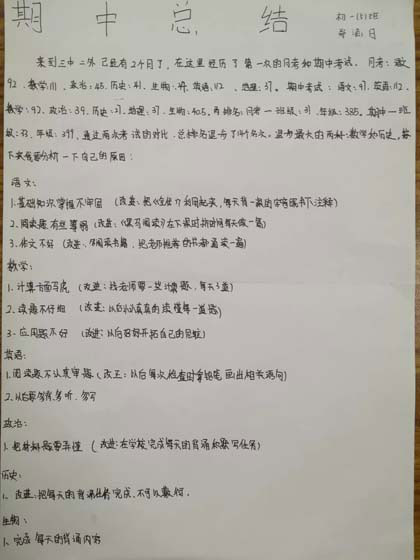 期中总结
初一1515班
来到三中二外已经有2个月了，在这里经历了第一次的月考和期中考试。月考：语文
92、数学111、政治：45、历史：41、生物：49、英语：112、地理：37。期中考试：语文：97、英语：112、
数学：92、政治：39、历史：27、地理：37、生物：40.5。而排名：月考一班级：31、年级：385。期中一班
级：33、年级：399，通过两次考试的对比，总排名退步了14个名次。退步最大的两科：数学和历史。接
下来我要分析一下自己的原因：
语文：
1.基础知识掌握不牢固（改进：把利用起来，每天背一课的字词或书下注释）
2.阅读题有些薄弱（改进：《黑马阅读》在下课时抓时间每天做一篇）
3.作文不好（改进：老师推荐的书都看读一篇）
数学：
1.计算方面马虎（改进：找老师要一些计算题，每天3道）
2.读题不仔细（改进：以后认认真真的读懂每一道题）
3.应用题不好（改进：以后好好开拓自己的思维）
英语：
1.阅读题不认真审题（改正：以后每次检查时拿铅笔画出相关语句）
2.以后要多听、多写
政治：
1.把材料题要弄懂（改进：在学校完成每天的背诵和默写任务）
历史：
1.改进：把每天的背诵任务完成，不可以敷衍。
生物：
1.完成每天的背诵内容